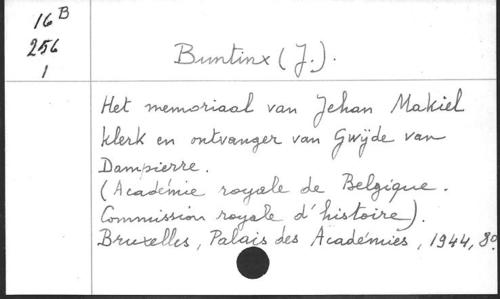 16 B
256
1
Buntinx (J.).
Het memoriaal van Jehan Makiel
klerk en ontvanger van Gwijde van
Dampierre.
(Académie royale de Belgique.
Commission royale d'histoire).
Bruxelles, Palais des Académies, 1944, 8°